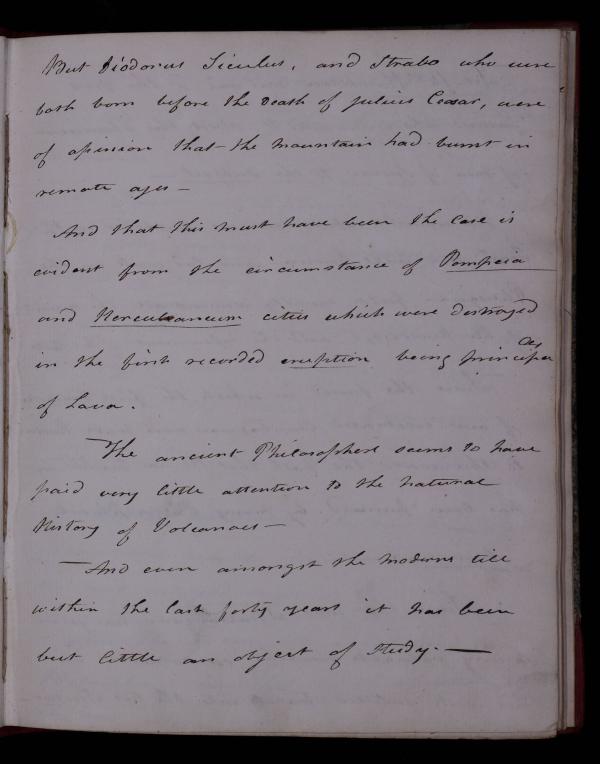 But Diodorus Siculus, and Strabo who were
both born before the Death of Julius Ceasar, were
of opinion that the mountain had burnt in
remote ages –
And that this must have been the case is
evident from the circumstance of Pompeia
and Herculaneum cities which were destroyed
in the first recorded eruption being
of Lava.
The ancient Philosophers seems to have
paid very little attention to the natural
History of Volcanoes –
– And even amongst the moderns till
within the last forty years it has been
but little an object of Study. –